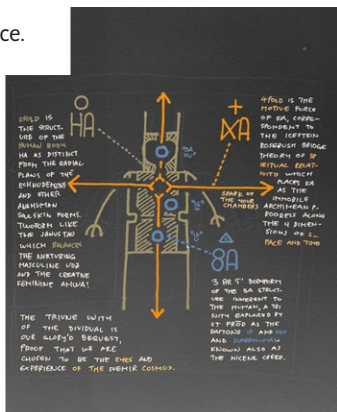 ce.
HA
2FOLD IS
THE STRUCT-
URE OF THE
HUMAN BODY
HA AS DISTINCT
FROM THE RADIAL
PLANS OF THE
ECHINODERMS
AND OTHER
SILLSKIN FORMS.
TWOFORM LIKE
THE JANUSTAU
WHICH BALANCES
THE NURTURING
MASCULINE
AND THE CREATIVE
FEMININE
+
4FOLD IS THE
MOTIVE FORCE
OF KA, CORRE-
SPONDENT TO
THE
ROSENRUSH BRIDGE
THEORY OF SP
IRITUAL RELAT-
IVITY WHICH
PLACES KA
AS THE
IMMOBILE
ARCHIMEAN P-
ROGRESS ALONG
THE 4 DIMEN-
SIONS OF S-
PACE AND TIME
SPARK OF
THE NOUS
CHAMBERS
8A
STRUCT-
URE INHERENT TO
THE HUMAN, A TRI
NITY EXPLORED BY
ST FRED AS THE
AND
AND SUPERHUMAN
KNOWN ALSO AS
THE NICENE CREED.
THE TRIUNE UNITY
OF THE DIVIDUAL IS
OUR GLORY'D BEQUEST,
PROOF THAT WE ARE
CHOSEN TO BE THE EYES AND
EXPERIENCE OF THE DIEMIR COSMOS.